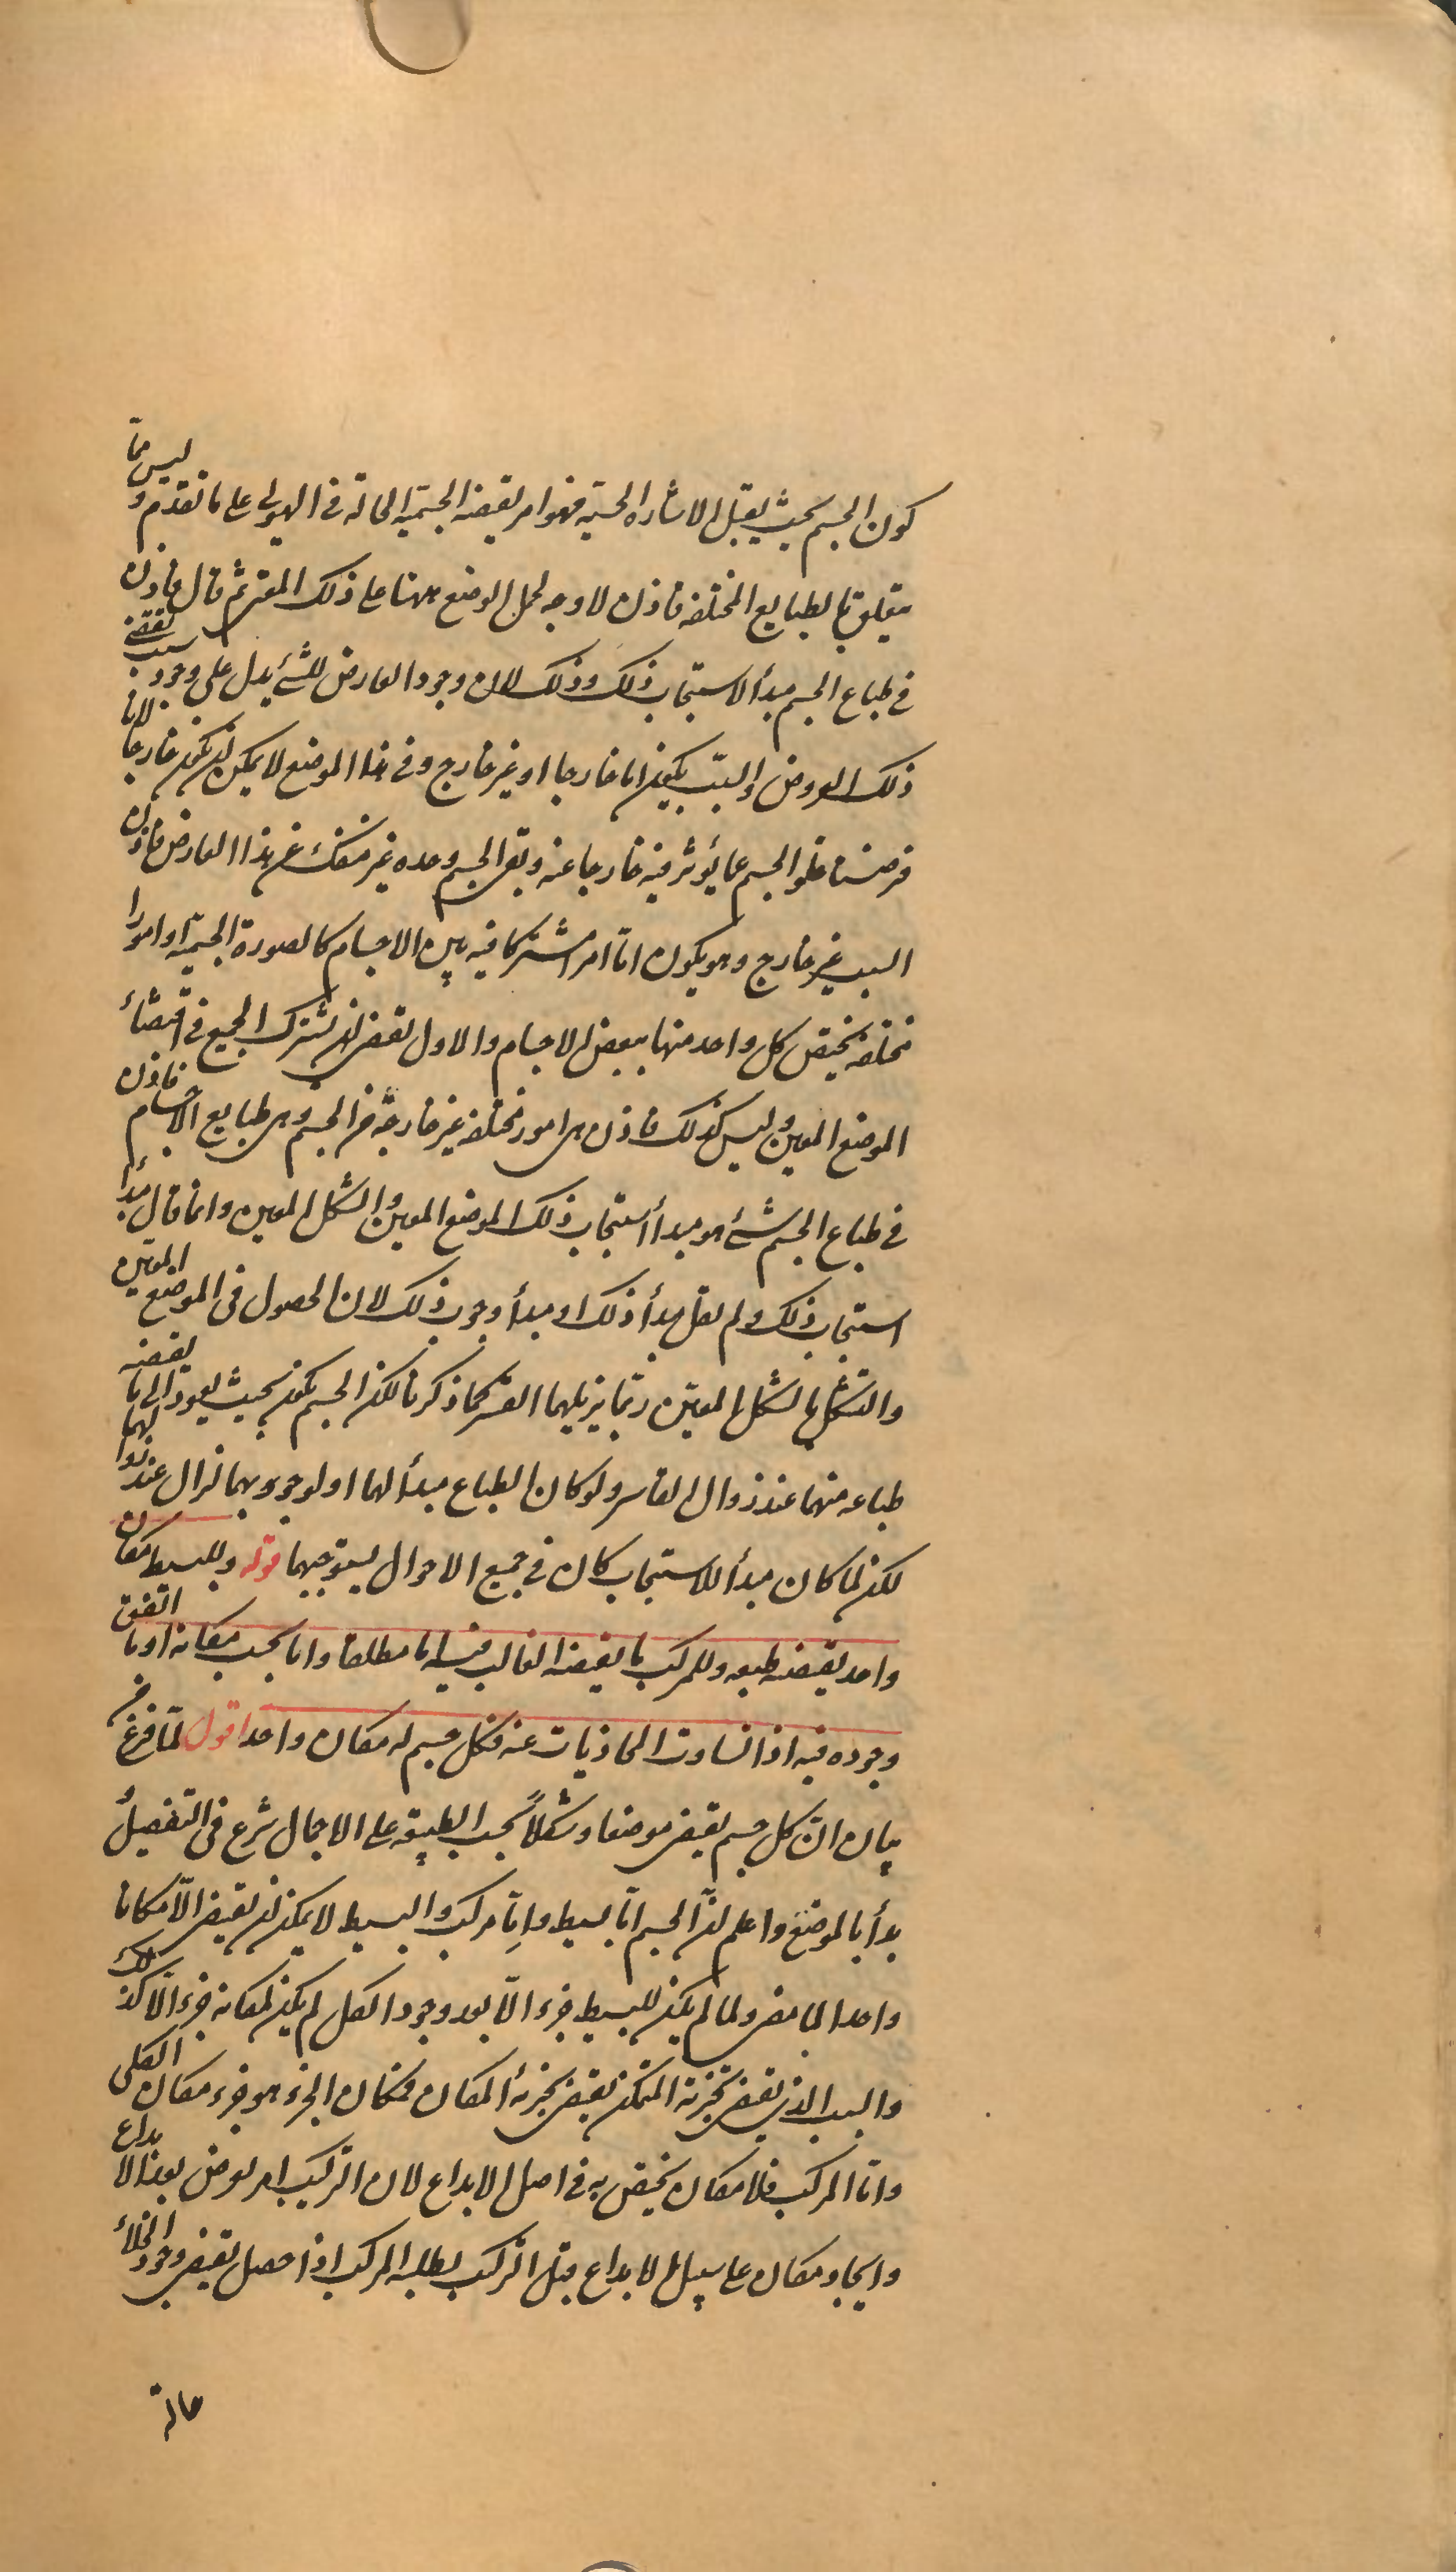 كون الجسم بحيث يقبل الاشارة الحسية فهو امر يقتضيه الجسمية الحالة في الهيولى على ما تقدم و ليس مما
يتعلق بالطبايع المختلفة فاذن لا وجه لحمل الوضع ههنا على ذلك المعنى ثم قال فاذن
في طباع الجسم مبدأ الاستيجاب ذلك وذلك لان وجود العارض للشئ يدل على وجود سبب يقتضي
ذلك العروض والسبب يكون اما خارجا او غير خارج وفي هذا الموضع لا يمكن ان يكون خارجا لانا
فرضنا خلو الجسم عما يؤثر فيه خارجا عنه وبقى الجسم وحده غير منفك عن هذا العارض فاذن
السبب غير خارج وهو يكون اما امرا مشتركا فيه بين الاجسام كالصورة الجسمية او امورا
مختلفة يختص كل واحد منها ببعض الاجسام والاول يقتضى ان يشترك الجميع في اقتضاء
الموضع المعين وليس كذلك فاذن هى امور مختلفة غير خارجة من الجسم وهى طبايع الاجسام فاذن
في طباع الجسم شئ هو مبدأ استيجاب ذلك الموضع المعين والشكل المعين وانما قال مبدأ
استيجاب ذلك ولم يقل مبدأ ذلك او مبدأ وجوب ذلك لان الحصول في الموضع المعين
والتشكل بالشكل المعين ربما يزيلهما القسر كما ذكرنا لكن الجسم يكون بحيث يعود الى ما يقتضيه
طباعه منهما عند زوال القاسر ولو كان الطباع مبدأ لهما او لوجوبهما لزال عند زوالهما
لكن لما كان مبدأ للاستيجاب كان في جميع الاحوال يستوجبهما قوله وللبسيط مكان
واحد يقتضيه طبعه وللمركب ما يقتضيه الغالب فيه اما مطلقا واما بحسب مكانه او ما اتفق
وجوده فيه اذا تساوت المحاذيات عنه فكل جسم له مكان واحد اقول لما فرغ من
بيان ان كل جسم يقتضى موضعا وشكلا بحسب الطبيعة على الاجمال شرع في التفصيل
بدأ بالموضع واعلم ان الجسم اما بسيط واما مركب والبسيط لا يمكن ان يقتضى الا مكانا
واحدا لما مضى ولما لم يكن للبسيط جزء الا بعد وجود الكل لم يكن لمكانه جزء الا كذلك
والسبب الذى يقتضى تجزئة المتمكن يقتضى تجزئة المكان فمكان الجزء هو جزء مكان الكل
واما المركب فلا مكان يختص به في اصل الابداع لان التركيب امر يعرض بعد الابداع
وايجاد مكان على سبيل الابداع قبل التركيب يطلبه المركب اذا حصل يقتضى وجود الخلاء